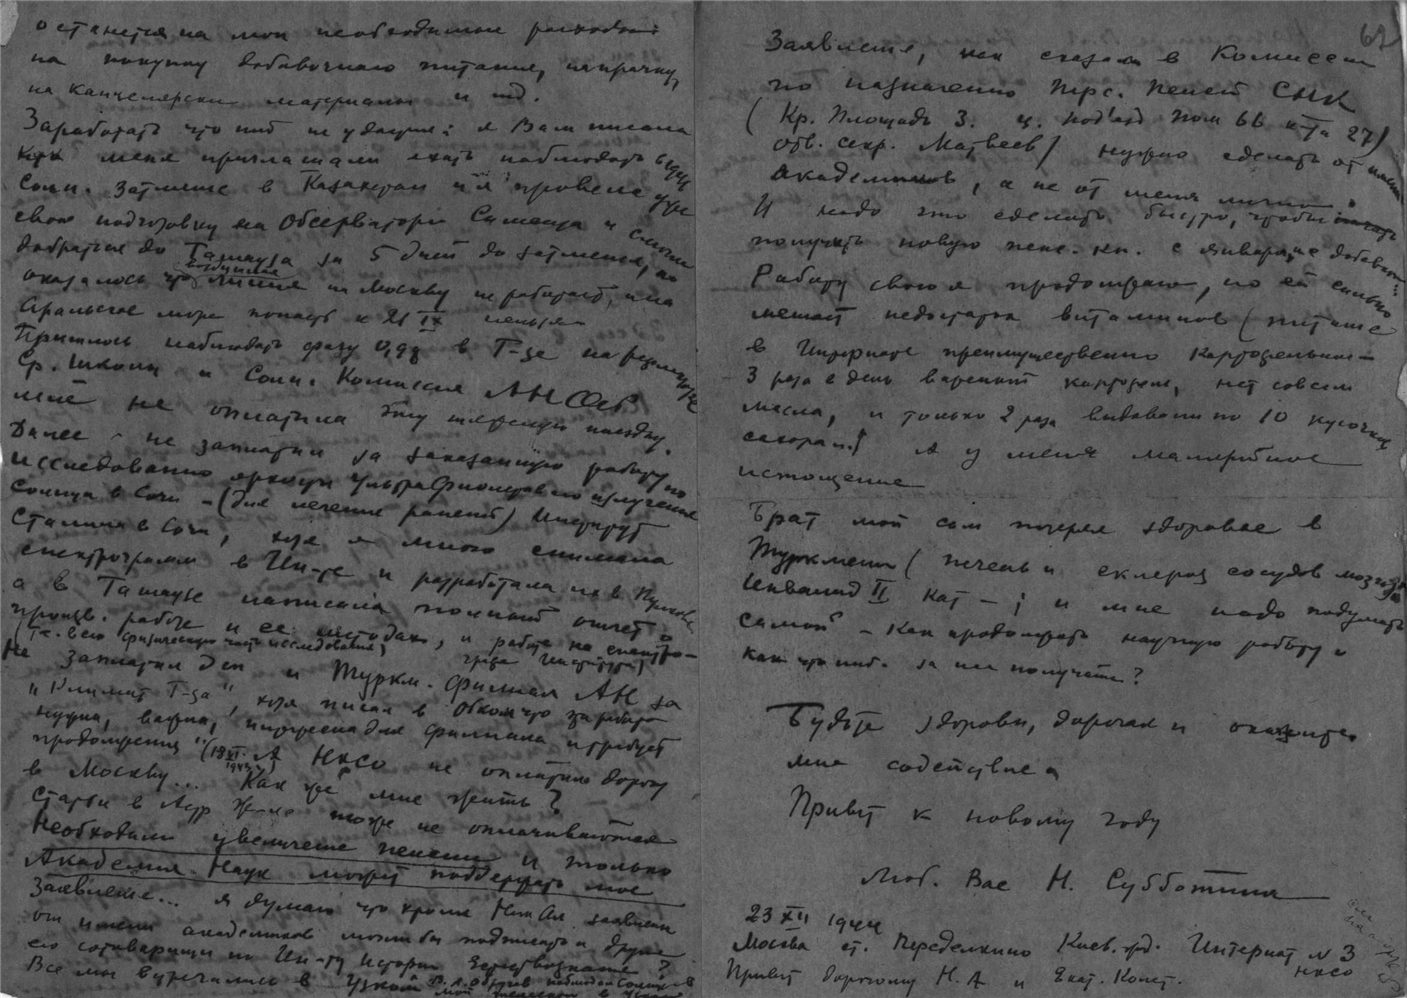 останется на мои необходимые расходы:
на покупку добавочного питания, на прачку,
на канцелярски материалы и тд.
Заработать что ниб не удается: я Вам писала
как меня приглашали ехать наблюдать
Солн. затмение в Казахстан и я провела уже
свою подготовку на Обсерватории Симеиза и
добраться до Ташауза за 5 дней до затмения, но
воздушная
оказалось что линия на Москву не работает, и на
Аральское море попасть к 21 IX нельзя
Пришлось наблюдать фазу 0,98 в Т-зе на
Ср. Школы и Солн. Комиссия АН
мне не оплатила эту поездку.
Далее не заплатил за заказанную работу по
исследованию ультрафиолетового излучения
солнца в Сочи – (для лечения раненых) Институт
Сталина в Сочи, хотя я много снимала
спектрограмм в Ин-те и разработала их в
а в Ташаузе написала полный отчет о
произв. работе и ее методах, и работе на спектро-
(т.к. всю физическую часть исследования)
Не заплатил и Туркм. филиал АН за
"Климат Т-за", хотя писал в Обком что работа
нужна, важна, интересна для филиала и требует
продолжения" (18 XI. А НКСО не оплатило дорогу
в Москву... Как же мне жить?
Статьи в Астр Журнале тоже не оплачиваются
Необходимо увеличение пенсии и только
Академия Наук может поддержать мое
Заявление... Я думаю что кроме Ник Ал заявление
от имени академиков могли бы подписать и другие
его сотоварищи по Ин-ту Истории Естествознания?
Все мы встречались в Узком
62
Заявление, как сказали в Комиссии
по назначению перс. пенсий СНК
(Кр. Площадь 3. ц. подъезд пом 66 к-та 27)
отв. секр. Матвеев) нужно сделать от имени
академиков, а не от меня лично.
И надо это сделать быстро, чтобы
получить новую пенс. кн. с января, не
Работу свою я продолжаю, но ей сильно
мешает недостаток витаминов (питание
в Интернате преимущественно картофельное –
3 раза в день вареный картофель, нет совсем
масла, и только 2 раза выдавали по 10 кусочков
сахара..! А у меня малярийное
истощение
Брат мой сам потерял здоровье в
Туркмении (печень и склероз сосудов мозга)
Инвалид II кат – ; и мне надо подумать
самой – как продолжать научную работу и
как что ниб. за нее получать?
Будьте здоровы, дорогая и окажите
мне содействие
Привет к новому году
Люб. Вас Н. Субботина
23 XII 1944
Москва ст. Переделкино Киев. жд. Интернат N 3
НКСО
Привет дорогому Н. А и Екат. Конст.